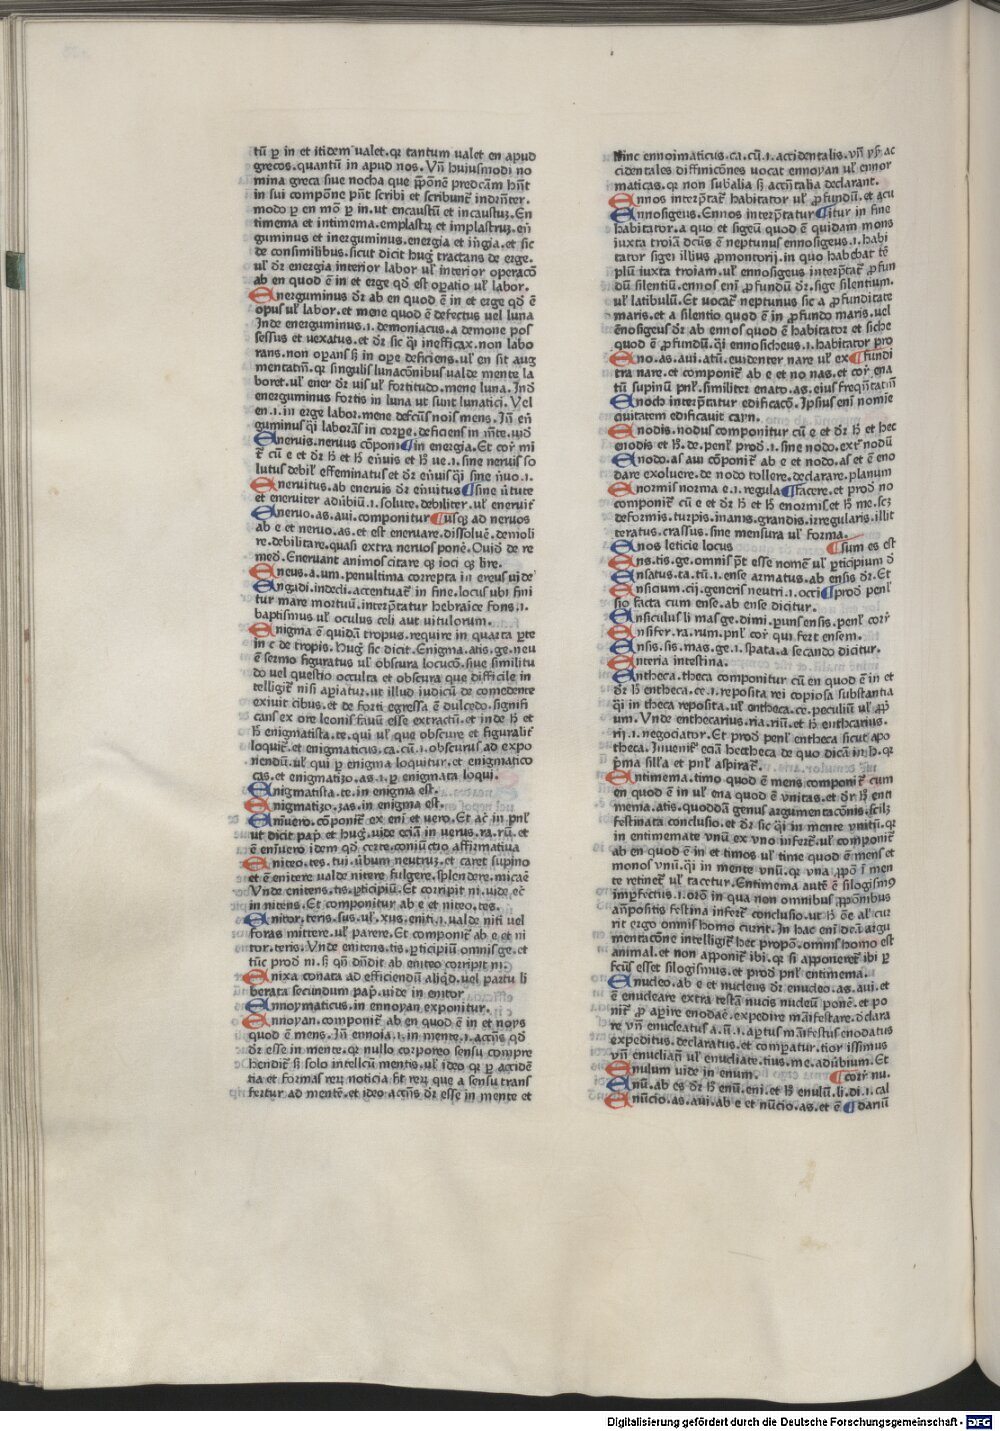 tū ꝑ in et itidem valet.qꝛ tantum valet en apud
grecos.quantū in apud nos. Vn̄ huiusmodi no
mina greca siue nocha que p̄pōne predcām hn̄t
in sui compōne pn̄t scribi et scribunt᷑ indr̄nter.
modo ꝑ en mō ꝑ in.ut encaustū et incaustuꝫ. En
timema et intimema.emplastꝝ et implastruꝫ.en̄
guminus et inerguminus.energia et in̄gia.et sic
de consimilibus.sicut dicit hug᷑ tractans de erge.
ul̓ dr̄ energia interior labor ul̓ interior operacō
ab en quod ē in et erge qd̓ est oꝑatio ul̓ labor.
Energuminus dr̄ ab en quod ē in et erge qd̓ ē
opus ul̓ labor.et mene quod ē defectus vel luna
Inde energuminus.i.demoniacus.a demone pos
sessus et vexatus.et dr̄ sic q̄i inefficax.non labo
rans.non oꝑans sꝫ in oꝑe deficiens.ul̓ en sit aug
mentatiū.qꝛ singulis lunacōnibus valde mente la
boret.ul̓ ener dr̄ vis ul̓ fortitudo.mene luna.Ind̓
energuminus fortis in luna ut sunt lunatici. Vel
en.i.in erge labor.mene defcūs nois mens. In̄ en̄
guminus q̄i laborās in corꝑe.deficiens in m̄te.
Eneruis.neruus cōponi in energia. Et cor̄ mi
t᷑ cū e et dr̄ hͦ et hͦ en̄uis et hͦ ue.i.sine neruis so
lutus debil̓ effeminatus et dr̄ en̄uis q̄i sine n̄uo.i.
Eneruitus.ab eneruis dr̄ en̄uitus sine v̄tute
et eneruiter adūbiū.i.solute.debiliter.ul̓ eneruit᷑
Eneruo.as.aui.componitur usqꝫ ad neruos
ab e et neruo.as.et est eneruare.dissoluē.demoli
re.debilitare.quasi extra neruos ponē. Ouid̓ de re
med̓. Eneruant animos citare qꝫ ioci qꝫ lire.
Eneus.a.um.penultima correpta in ereus vide
Engadi.indecli.accentuat᷑ in fine.locus ubi fini
tur mare mortuū.interp̄tatur hebraice fons.i.
baptismus ul̓ oculus celi aut vitulorum.
Enigma ē quidā tropus.require in quarta ꝑte
in c de tropis. Hug᷑ sic dicit. Enigma.atis.ge.neu
ē sermo figuratus ul̓ obscura locucō.siue similitu
do vel questio occulta et obscura que difficile in
telligit᷑ nisi aꝑiatur.ut illud iudicū de comedente
exiuit cibus.et de forti egressa ē dulcedo.signifi
cans ex ore leonis fauū esse extractū.et inde hͦ et
hͦ enigmatista.te.qui ul̓ que obscure et figuralit᷑
loquit᷑.et enigmaticus.ca.cū.i.obscurus ad expo
nendū.ul̓ qui ꝑ enigma loquitur.et enigmatico
cas.et enigmatizo.as.i.ꝑ enigmata loqui.
Enigmatista.te.in enigma est.
Enigmatizo.zas.in enigma est.
Enīuero.cōponit᷑ ex eni et vero. Et ac̄ in pnl̓
ut dicit pap̄.et hug᷑.vide eciā in verus.ra.rū.et
ē en̄uero idem qd̓ certe.coniūctio affirmatiua
Eniteo.tes.tui.ūbum neutruꝫ.et caret supino
et ē enitere valde nitere fulgere.splendere.micaē
Vnde enitens.tis.ꝑticipiū. Et corripit ni.vide ec̄
in nitens. Et componitur ab e et niteo.tes.
Enitor.teris.sus.ul̓.xus.eniti.i.valde niti vel
foras mittere.ul̓ parere. Et componit᷑ ab e et ni
tor.teris. Vnde enitens.tis.ꝑticipiū omnis ge.et
tūc prod̓ ni.sꝫ qn̄ dn̄dit ab eniteo corripit ni.
Enixa conata ad efficiendū aliqd̓.vel partu li
berata secundum pap̄.vide in enitor
Ennoymaticus.in ennoyan exponitur.
Ennoyan.componit᷑ ab en quod ē in et noys
quod ē mens. In̄ ennoia.i.in mente.i.accn̄s qd̓
dr̄ esse in mente.qꝛ nullo corporeo sensu compre
hendit᷑ sꝫ solo intellcū mentis.ul̓ ideo qꝛ ꝑ accidē
tia et formas reꝝ noticia fit reꝝ que a sensu trans
fertur ad mentē.et ideo accn̄s dr̄ esse in mente et
Hinc ennoimaticus.ca.cū.i.accidentalis.vn̄ ys̓ ac
cidentales diffinicōnes vocat ennoyan ul̓ ennor
maticas.qꝛ non subalia sꝫ accn̄talia declarant.
Ennos interp̄tat᷑ habitator ul̓ ꝓfundū.et
Ennosigeus. Ennos interp̄tatur itur in fine
habitator.a quo et sigeū quod ē quidam mons
iuxta troiā dcūs ē neptunus ennosigeus.i.habi
tator sigei illius ꝓmontorij.in quo habebat tē
plū iuxta troiam.ul̓ ennosigeus interp̄tat᷑ ꝓfun
dū silentiū.ennos eni ꝓfundū dr̄.sige silentium.
ul̓ latibulū. Et vocat᷑ neptunus sic a ꝓfunditate
maris.et a silentio quod ē in ꝓfundo maris.vel
ēnosigeus dr̄ ab ennos quod ē habitator et siche
quod ē ꝓfundū.q̄i ennosicheus.i.habitator pro
Eno.as.aui.atū.euidenter nare ul̓ ex fundi
tra nare.et componit᷑ ab e et no nas.et cor̄ ena
tū supinū pnl̓.similiter enato.as.eius freq̄ntatiū
Enoch interp̄tatur edificacō. Ipsius eni nomīe
ciuitatem edificauit cayn.
Enodis.nodus componitur cū e et dr̄ hͦ et hec
enodis et hͦ.de.penl̓ prod̓.i.sine nodo.ext᷑ nodū
Enodo.as aui cōponit᷑ ab e et nodo.as et ē eno
dare exoluere.de nodo tollere.declarare.planum
Enormis norma e.i.regula facere.et prod̓ no
componit᷑ cū e et dr̄ hͦ et hͦ enormis et hͦ me.scꝫ
deformis.turpis.inanis.grandis.irregularis.illit
teratus.crassus.sine mensura ul̓ forma.
Enos leticie locus sum es est
Ens.tis.ge.omnis p̄t esse nomē ul̓ ꝑticipium d̓
Ensatus.ta.tū.i.ense armatus.ab ensis dr̄. Et
Ensicium.cij.generis neutri.i.occi prod̓ penl̓
sio facta cum ense.ab ense dicitur.
Ensiculus li mas ge.dimi.ꝑuus ensis.penl̓ cor̄
Ensifer.ra.rum.pnl̓ cor̄ qui fert ensem.
Ensis.sis.mas.ge.i.spata.a secando dicitur.
Enteria intestina.
Entheca.theca componitur cū en quod ē in et
dr̄ hͦ entheca.ce.i.reposita rei copiosa substantia
q̄i in theca reposita.ul̓ entheca.ce.peculiū ul̓ ꝓp̄
um. Vnde enthecarius.ria.riū.et hͦ enthcarius.
rij.i.negociator. Et prod̓ penl̓ entheca sicut apo
theca. Inuenit᷑ eciā hectheca de quo dicā in h.qꝛ
p̄ma silla et pnl̓ aspirat᷑.
Entimema.timo quod ē mens componit᷑ cum
en quod ē in ul̓ ena quod ē vnitas.et dr̄ hͦ enti
mema.atis.quoddā genus argumentacōnis.scilꝫ
festinata conclusio.et dr̄ sic q̄i in mente vnitū.qꝛ
in entimemate vnū ex vno infert᷑.ul̓ componit᷑
ab en quod ē in et timos ul̓ time quod ē mens et
monos vnū.q̄i in mente vnū.qꝛ vna ꝓpō ī men
te retinet᷑ ul̓ tacetur. Entimema autē ē silogismꝰ
imꝑfectus.i.orō in qua non omnibus ꝓpōnibus
an̄positis festina infert᷑ conclusio.ut hͦ ōe aīal cur
rit ergo omnis homo currit. In hac eni argu
mentacōne intelligit᷑ hec propō.omnis homo est
animal.et non apponit᷑ ibi.qꝛ si apponeret᷑ ibi ꝑ
fcūs esset silogismus.et prod̓ pnl̓ entimema.
Enucleo.ab e et nucleus dr̄ enucleo.as.aui.et
ē enucleare extra testā nucis nucleū ponē.et po
nit᷑ ꝓ aꝑire enodaē.expedire manifestare.d̓clara
re vn̄ enucleatus a.ū.i.aꝑtus mānifestus enodatus
expeditus.declaratus.et comꝑatur.tior issimus
vn̄ enucliatī ul̓ enucliate.tius.me.adūbium. Et
Enulum vide in enum. cor̄ nu.
Enū.ab es dr̄ hͦ enū.eni.et hͦ enulū.li.di.i.cal
Enūcio.as.aui.ab e et nūcio.as.et ē dariū
Digitalisierung gefördert durch die Deutsche Forschungsgemeinschaft - DFG